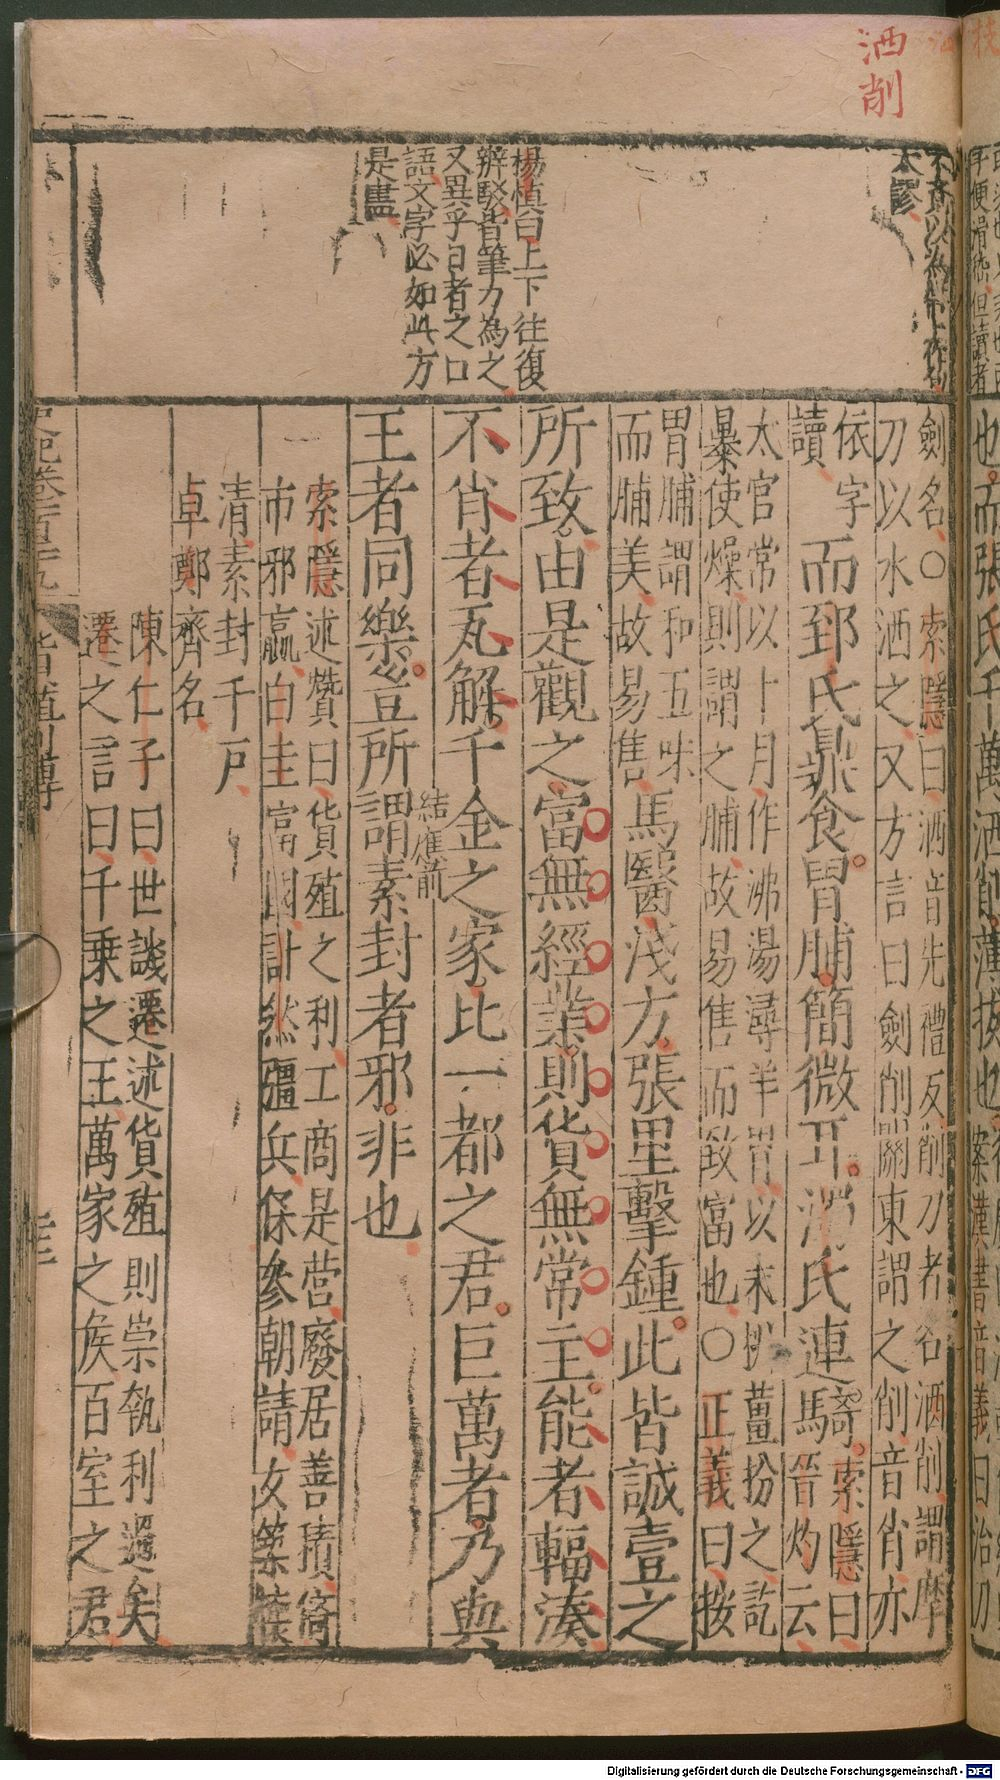 洒削
太謬
楊慎曰上下往復
辨駁皆筆力為之
又異乎日者之口
語文字必如此方
是盡
劍名○索隱曰洒音先禮反削刀者名洒削謂摩
刀以水洒之又方言曰劍削關東謂之削音肖亦
依字
讀
而郅氏鼎食胃脯簡微耳濁氏連騎
索隱曰
晉灼云
太官常以十月作沸湯潯羊胃以末椒薑扮之訖
暴使燥則謂之脯故易售而致富也○正義曰按
胃脯謂和五味
而脯美故易售
馬醫淺方張里擊鍾此皆誠壹之
所致由是觀之富無經業則貨無常主能者輻湊
不肖者瓦解千金之家比一都之君巨萬者乃與
結應前
王者同樂豈所謂素封者邪非也
索隱述贊曰貨殖之利工商是营廢居善積倚
市邪贏白圭富國計然彊兵倮參朝請女築懷
清素封千戶
卓鄭齊名
陳仁子曰世談遷述貨殖則崇埶利遯矣
遷之言曰千乗之王萬家之矦百室之君
史記卷一百二十九
貨殖列傳
也而張氏千萬洒削薄技也
案漢書音義曰治刀
Digitalisierung gefördert durch die Deutsche Forschungsgemeinschaft - DFG